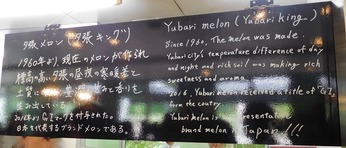 夕張メロン(夕張キング)
1960年より、現在のメロンが作られ
標高高い夕張の昼夜の寒暖差と
土質に
香りを
生み出している
2016年より GIマークを付与された。
日本を代表するブランドメロンである。
Yubari melon (Yubari king)
Since 1960, The melon was made.
Yubari city's temperature difference of day
and night and rich soil was making rich
sweetness and aroma
2016, Yubari melon received a title of "GI"
from the country.
Yubari melon is representative
brand melon in Japan!!!